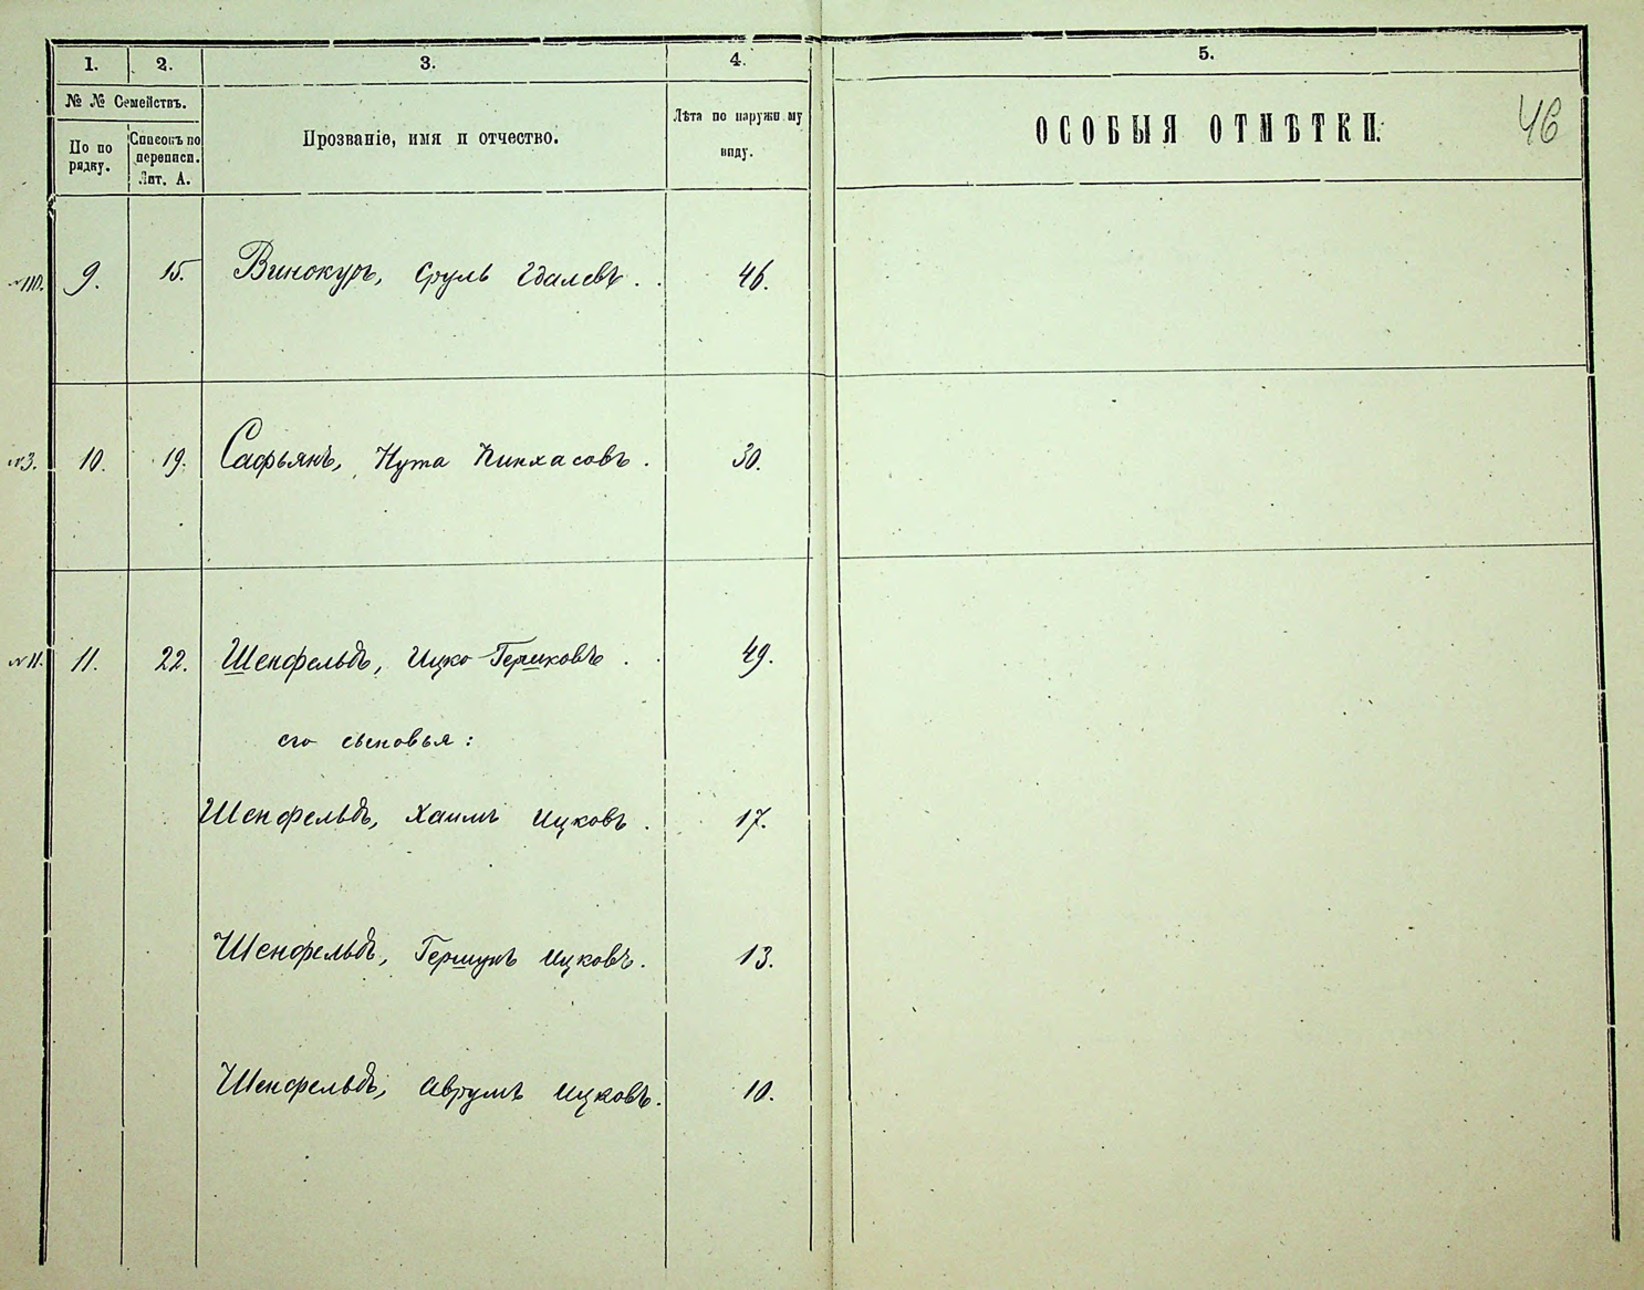 1. 2. 3. 4. 5.
№ № Семействъ.
По по рядку. Списокъ по переписи. Лит. А. Прозваніе, имя и отчество. Лѣта по наружному виду. ОСОБЫЯ ОТМѢТКИ. 46
№110. 9. 15. Винокуръ, Сруль Гдалевъ. 46.
№3. 10. 19. Сафьянъ, Нута Пинхасовъ. 30.
№11. 11. 22. Шенфельдъ, Ицко-Гершковъ. 49.
его сыновья:
Шенфельдъ, Хаимъ Ицковъ. 17.
Шенфельдъ, Гершунъ Ицковъ. 13.
Шенфельдъ, Аврумъ Ицковъ. 10.